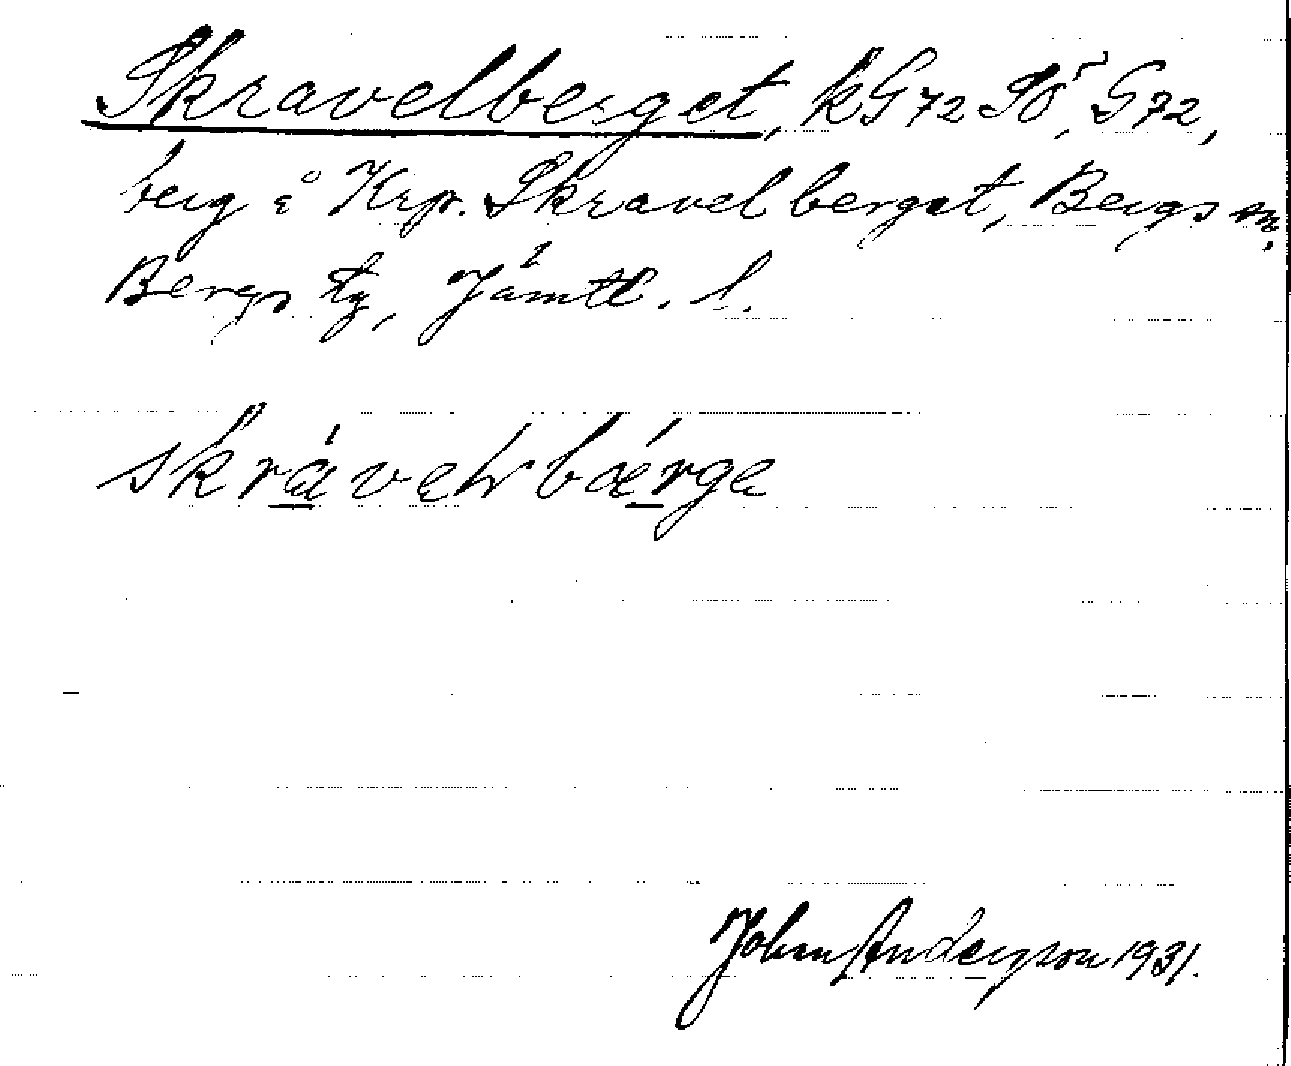 Skravelberget, k G72 SÖ, G72,
berg å Krp. Skravelberget, Bergs sn,
Bergs tg, Jämtl. l.
bærga
Johan Anderson 1931.